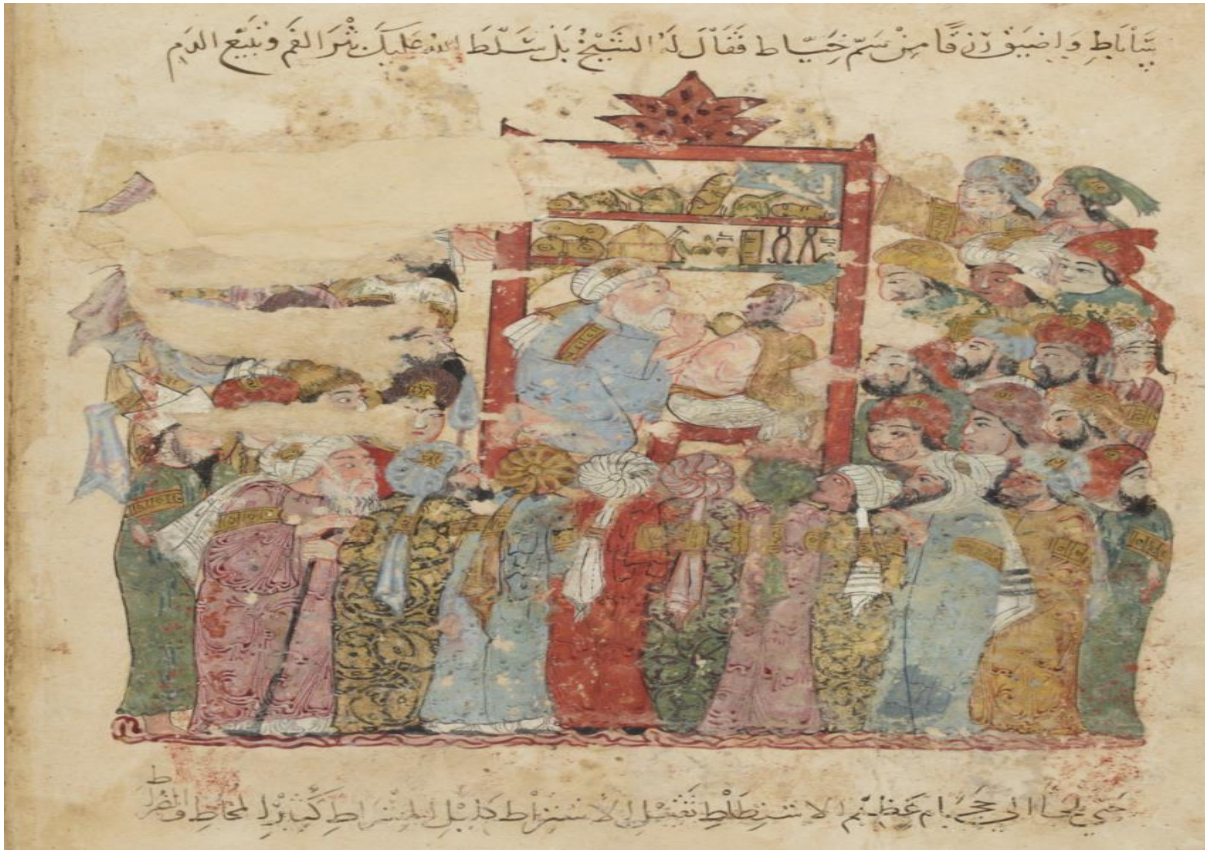 ساباط واضيق رزقا من سم خياط فقال له الشيخ بل سلط الله عليك بثر الفم وتبيغ الدم
حتى تلجا الى حجام عظيم الاشتطاط ثقيل الاشتراط كليل المشراط كثير المخاط والضراط